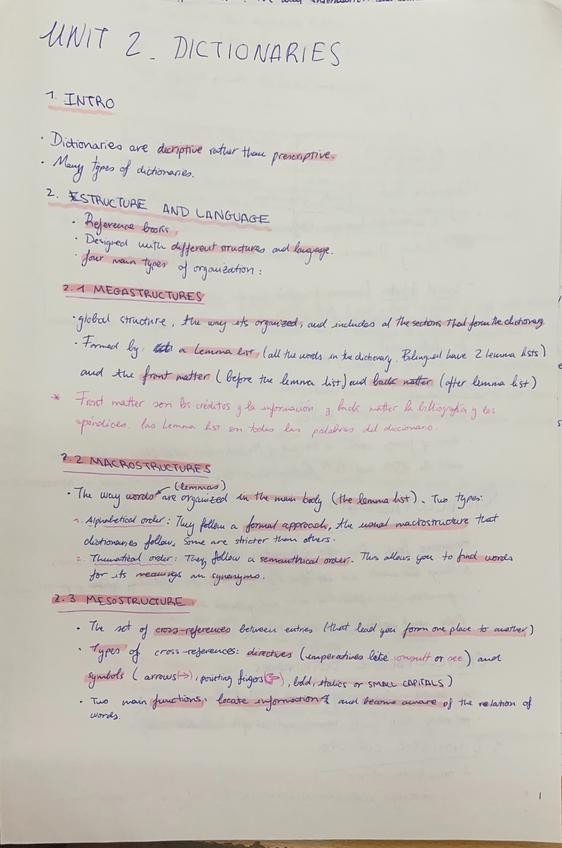 UNIT 2. DICTIONARIES
1. INTRO
· Dictionaries are decriptive rather than prescriptive.
· Many types of dictionaries.
2. ESTRUCTURE AND LANGUAGE
· Reference books.
· Designed with different structures and language.
· four main types of organization:
2.1 MEGASTRUCTURES
· global structure, the way its organized, and includes al the sections that form the dictionary
· Formed by a lemma list (all the words in the dictionary, Bilingual have 2 lemma lists)
and the front matter (before the lemma list) and back matter (after lemma list)
* Front matter son los créditos y la información y back matter la bibliografía y los
apéndices. Las Lemma list son todas las palabras del diccionario.
2.2 MACROSTRUCTURES
(lemmas)
· The way words are organized in the main body (the lemma list). Two types:
1. Alphabetical order: They follow a formal approach, the usual macrostructure that
dictionaries follow. Some are stricter than others.
2. Thematical order: They follow a semanthical order. This allows you to find words
for its meanings an synonyms.
2.3 MESOSTRUCTURE
· The set of cross-references between entries (that lead you form one place to another)
· Types of cross-references: directives (imperatives like consult or see) and
symbols (arrows (→), pointing fingers (☞), bold, italics or SMALL CAPITALS)
· Two main functions: locate information and become aware of the relation of
words.
1